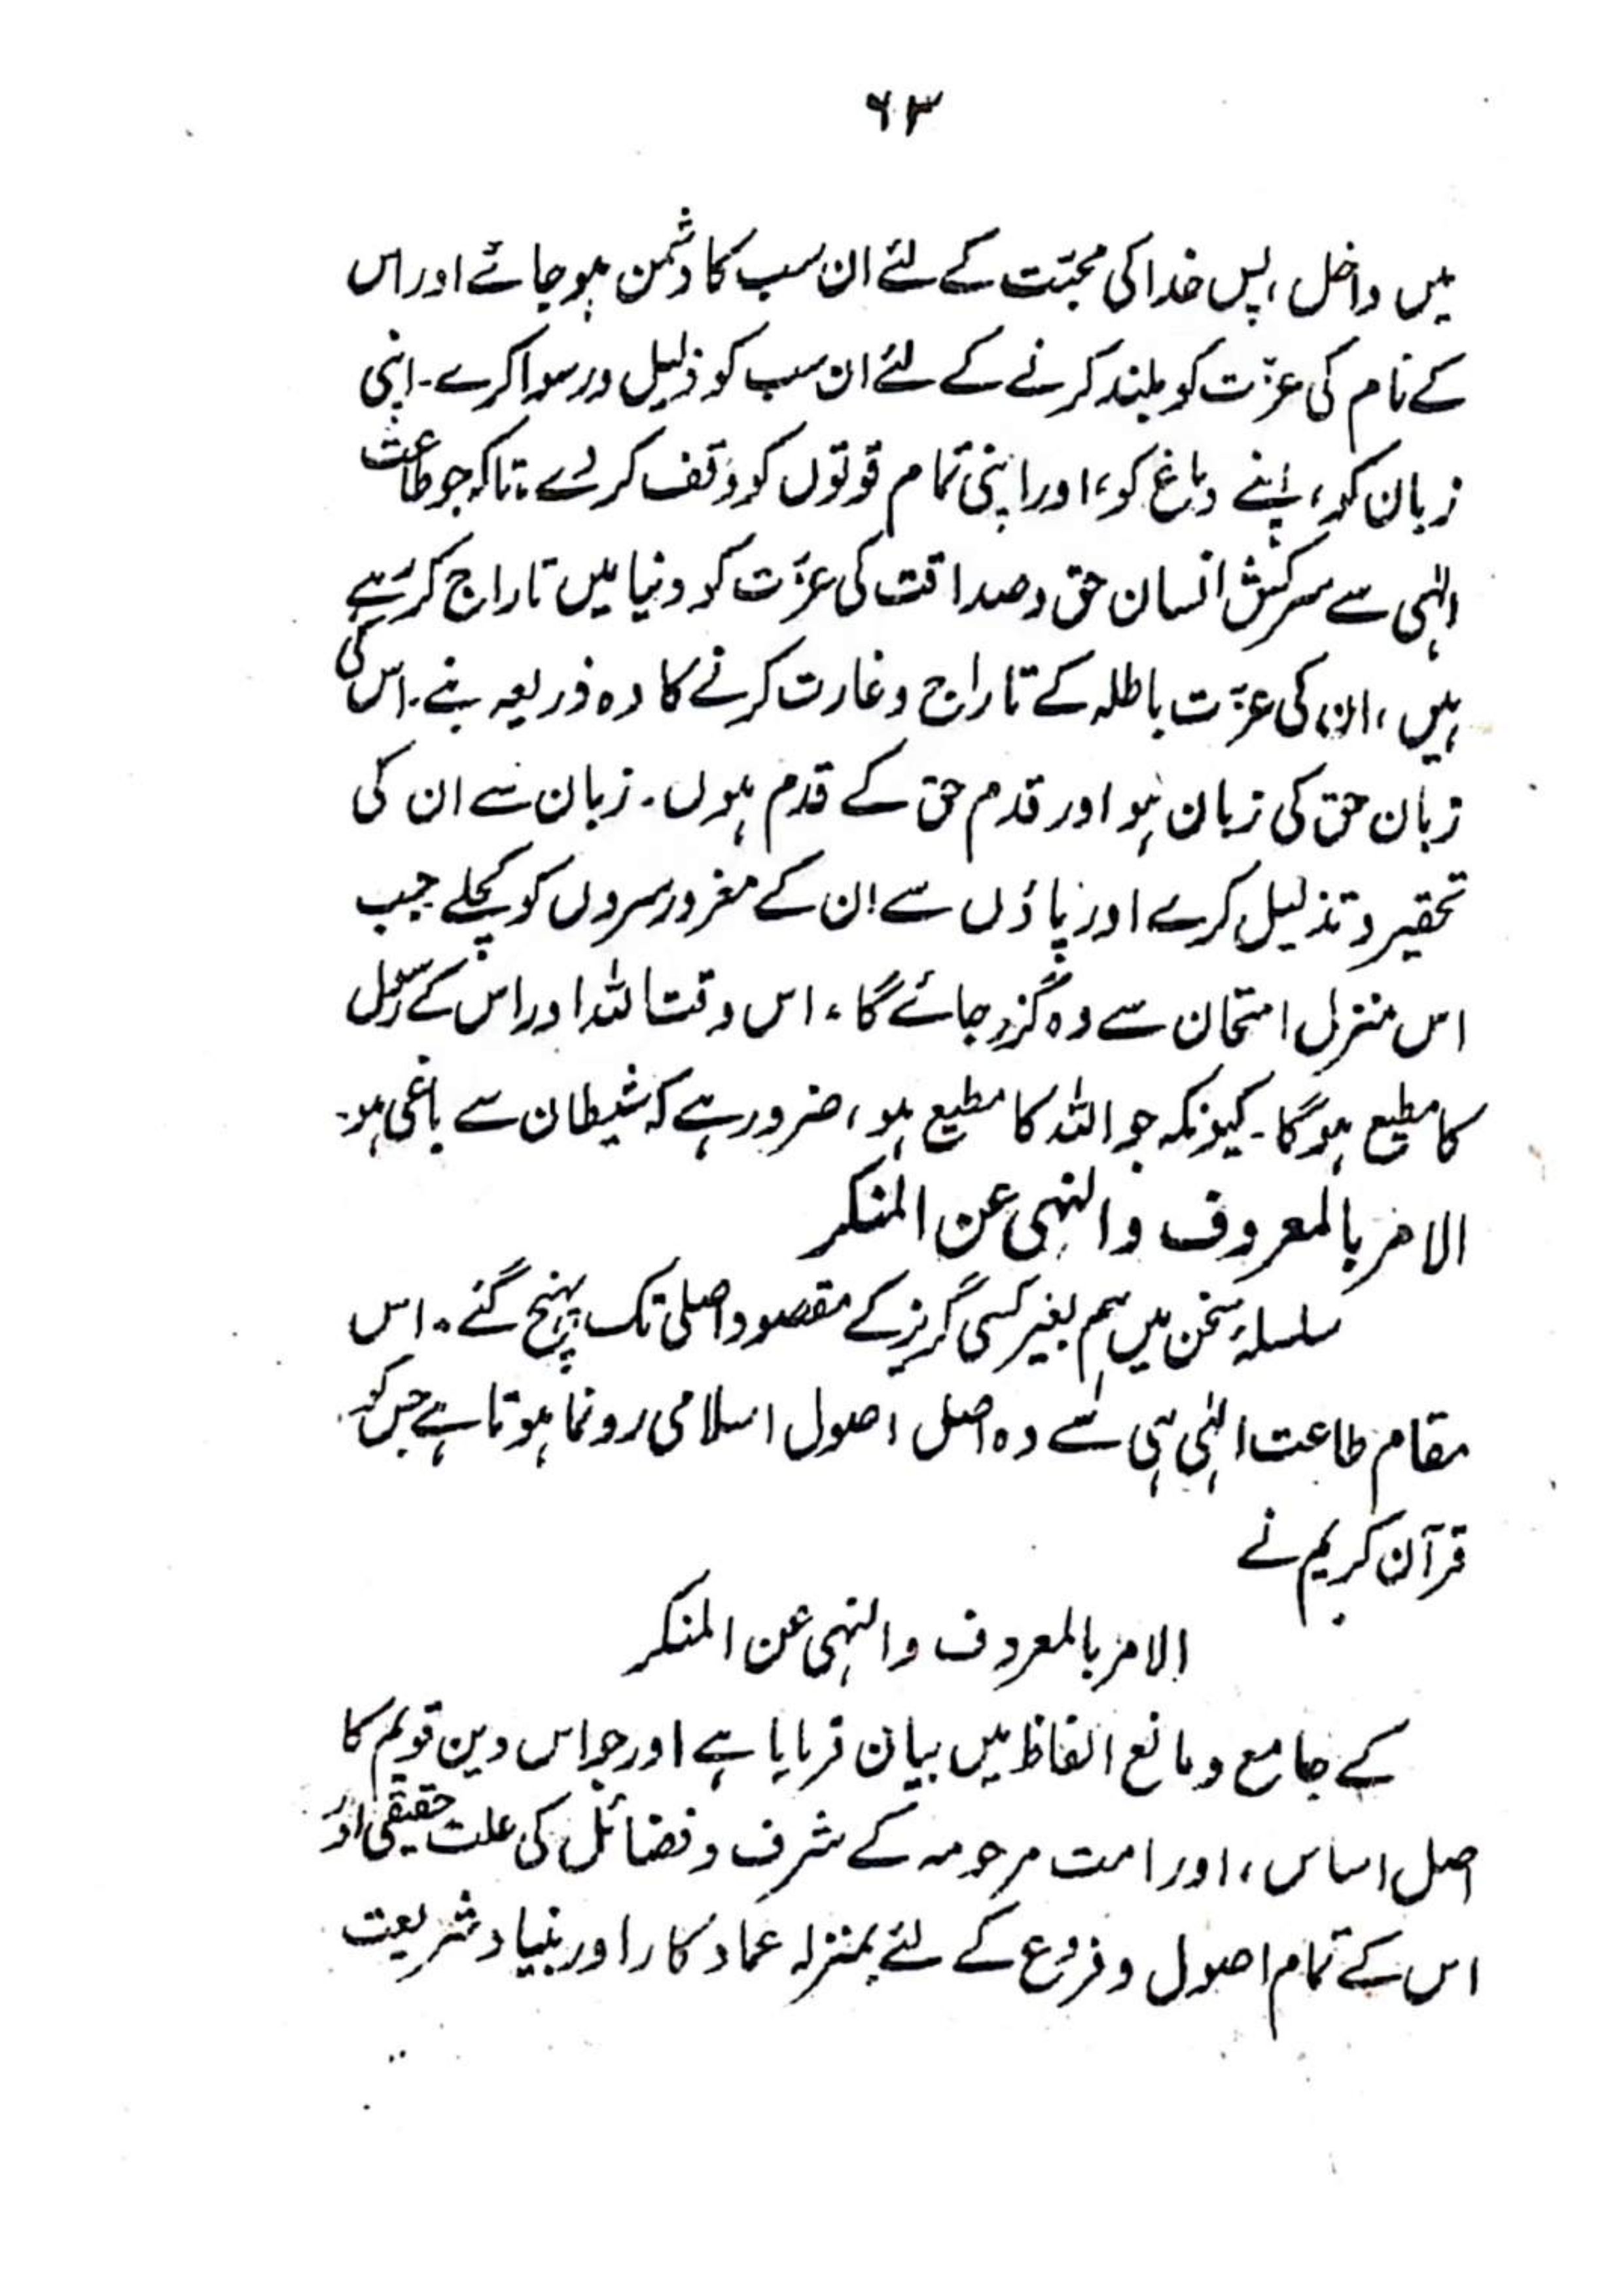 ۶۳
میں داخل، پس خدا کی محبّت کے لئے ان سب کا دشمن ہو جائے اور اس
کے نام کی عزّت کو بلند کرنے کے لئے ان سب کو ذلیل و رسوا کرے۔ اپنی
زبان کو، اپنے دماغ کو، اور اپنی تمام قوتوں کو وقف کر دے، تاکہ جو طاعت
الٰہی سے سرکش انسان حق و صداقت کی عزّت کو دنیا میں تاراج کر رہے
ہیں، ان کی عزّت باطلہ کے تاراج و غارت کرنے کا وہ ذریعہ بنے۔ اس کی
زبان حق کی زبان ہو اور قدم حق کے قدم ہوں۔ زبان سے ان کی
تحقیر و تذلیل کرے اور پاؤں سے ان کے مغرور سروں کو کچلے جب
اس منزل امتحان سے وہ گزر جائے گا، اس وقت اللہ اور اس کے رسول
کا مطیع ہو گا۔ کیونکہ جو اللہ کا مطیع ہو، ضرور ہے کہ شیطان سے باغی ہو۔
الامر بالمعروف والنہی عن المنکر
سلسلۂ سخن میں ہم بغیر کسی گریز کے مقصود اصلی تک پہنچ گئے۔ اس
مقام طاعت الٰہی ہی سے وہ اصل اصول اسلامی رونما ہوتا ہے جس کو
قرآن کریم نے
الامر بالمعروف والنہی عن المنکر
کے جامع و مانع الفاظ میں بیان فرمایا ہے اور جو اس دین قویم کا
اصل اساس، اور امت مرحومہ کے شرف و فضائل کی علت حقیقی اور
اس کے تمام اصول و فروع کے لئے بمنزلہ عماد کار اور بنیاد شریعت